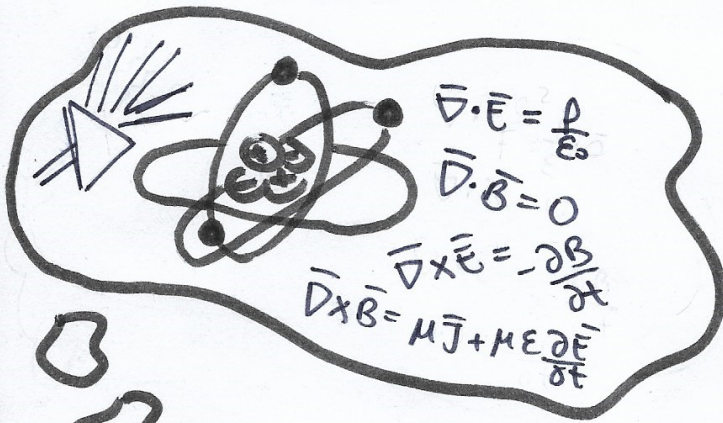 ∇̄·Ē = ρ/ε₀
∇̄·B̄ = 0
∇̄×Ē = -∂B̄/∂t
∇̄×B̄ = μJ̄ + με ∂Ē/∂t